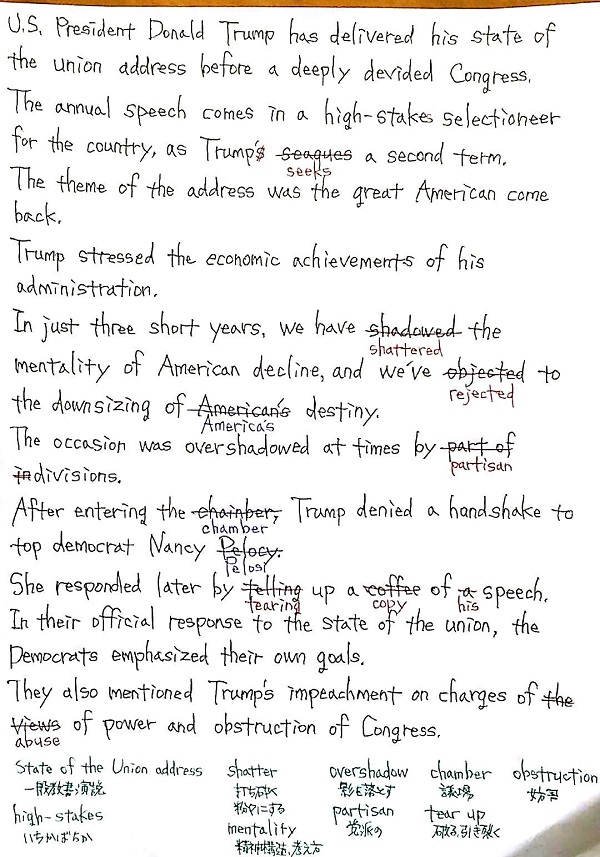 U.S. President Donald Trump has delivered his state of
the union address before a deeply devided Congress.
The annual speech comes in a high-stakes selectioneer
for the country, as Trump's seagues a second term.
seeks
The theme of the address was the great American come
back.
Trump stressed the economic achievements of his
administration.
In just three short years, we have shadowed the
shattered
mentality of American decline, and we've objected to
rejected
the downsizing of American's destiny.
America's
The occasion was overshadowed at times by part of
partisan
in divisions.
After entering the chainber, Trump denied a handshake to
chamber
top democrat Nancy Pelocy.
Pelosi
She responded later by telling up a coffee of a speech.
tearing copy his
In their official response to the state of the union, the
Democrats emphasized their own goals.
They also mentioned Trump's impeachment on charges of the
views of power and obstruction of Congress.
abuse
State of the Union address shatter overshadow chamber obstruction
一般教書演説 打ち砕く 影を落とす 議場 妨害
high-stakes 粉々にする partisan tear up
いちかばちか mentality 党派の 破る、引き裂く
精神構造、考え方